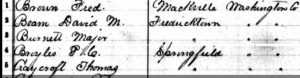 1 Brown Fred. Mackville Washington Co
2 Beam David M. Fredricktown " "
3 Burnett Major " " "
4 Broyles P. C. Springfield " "
5 Craycroft Thomas " " "